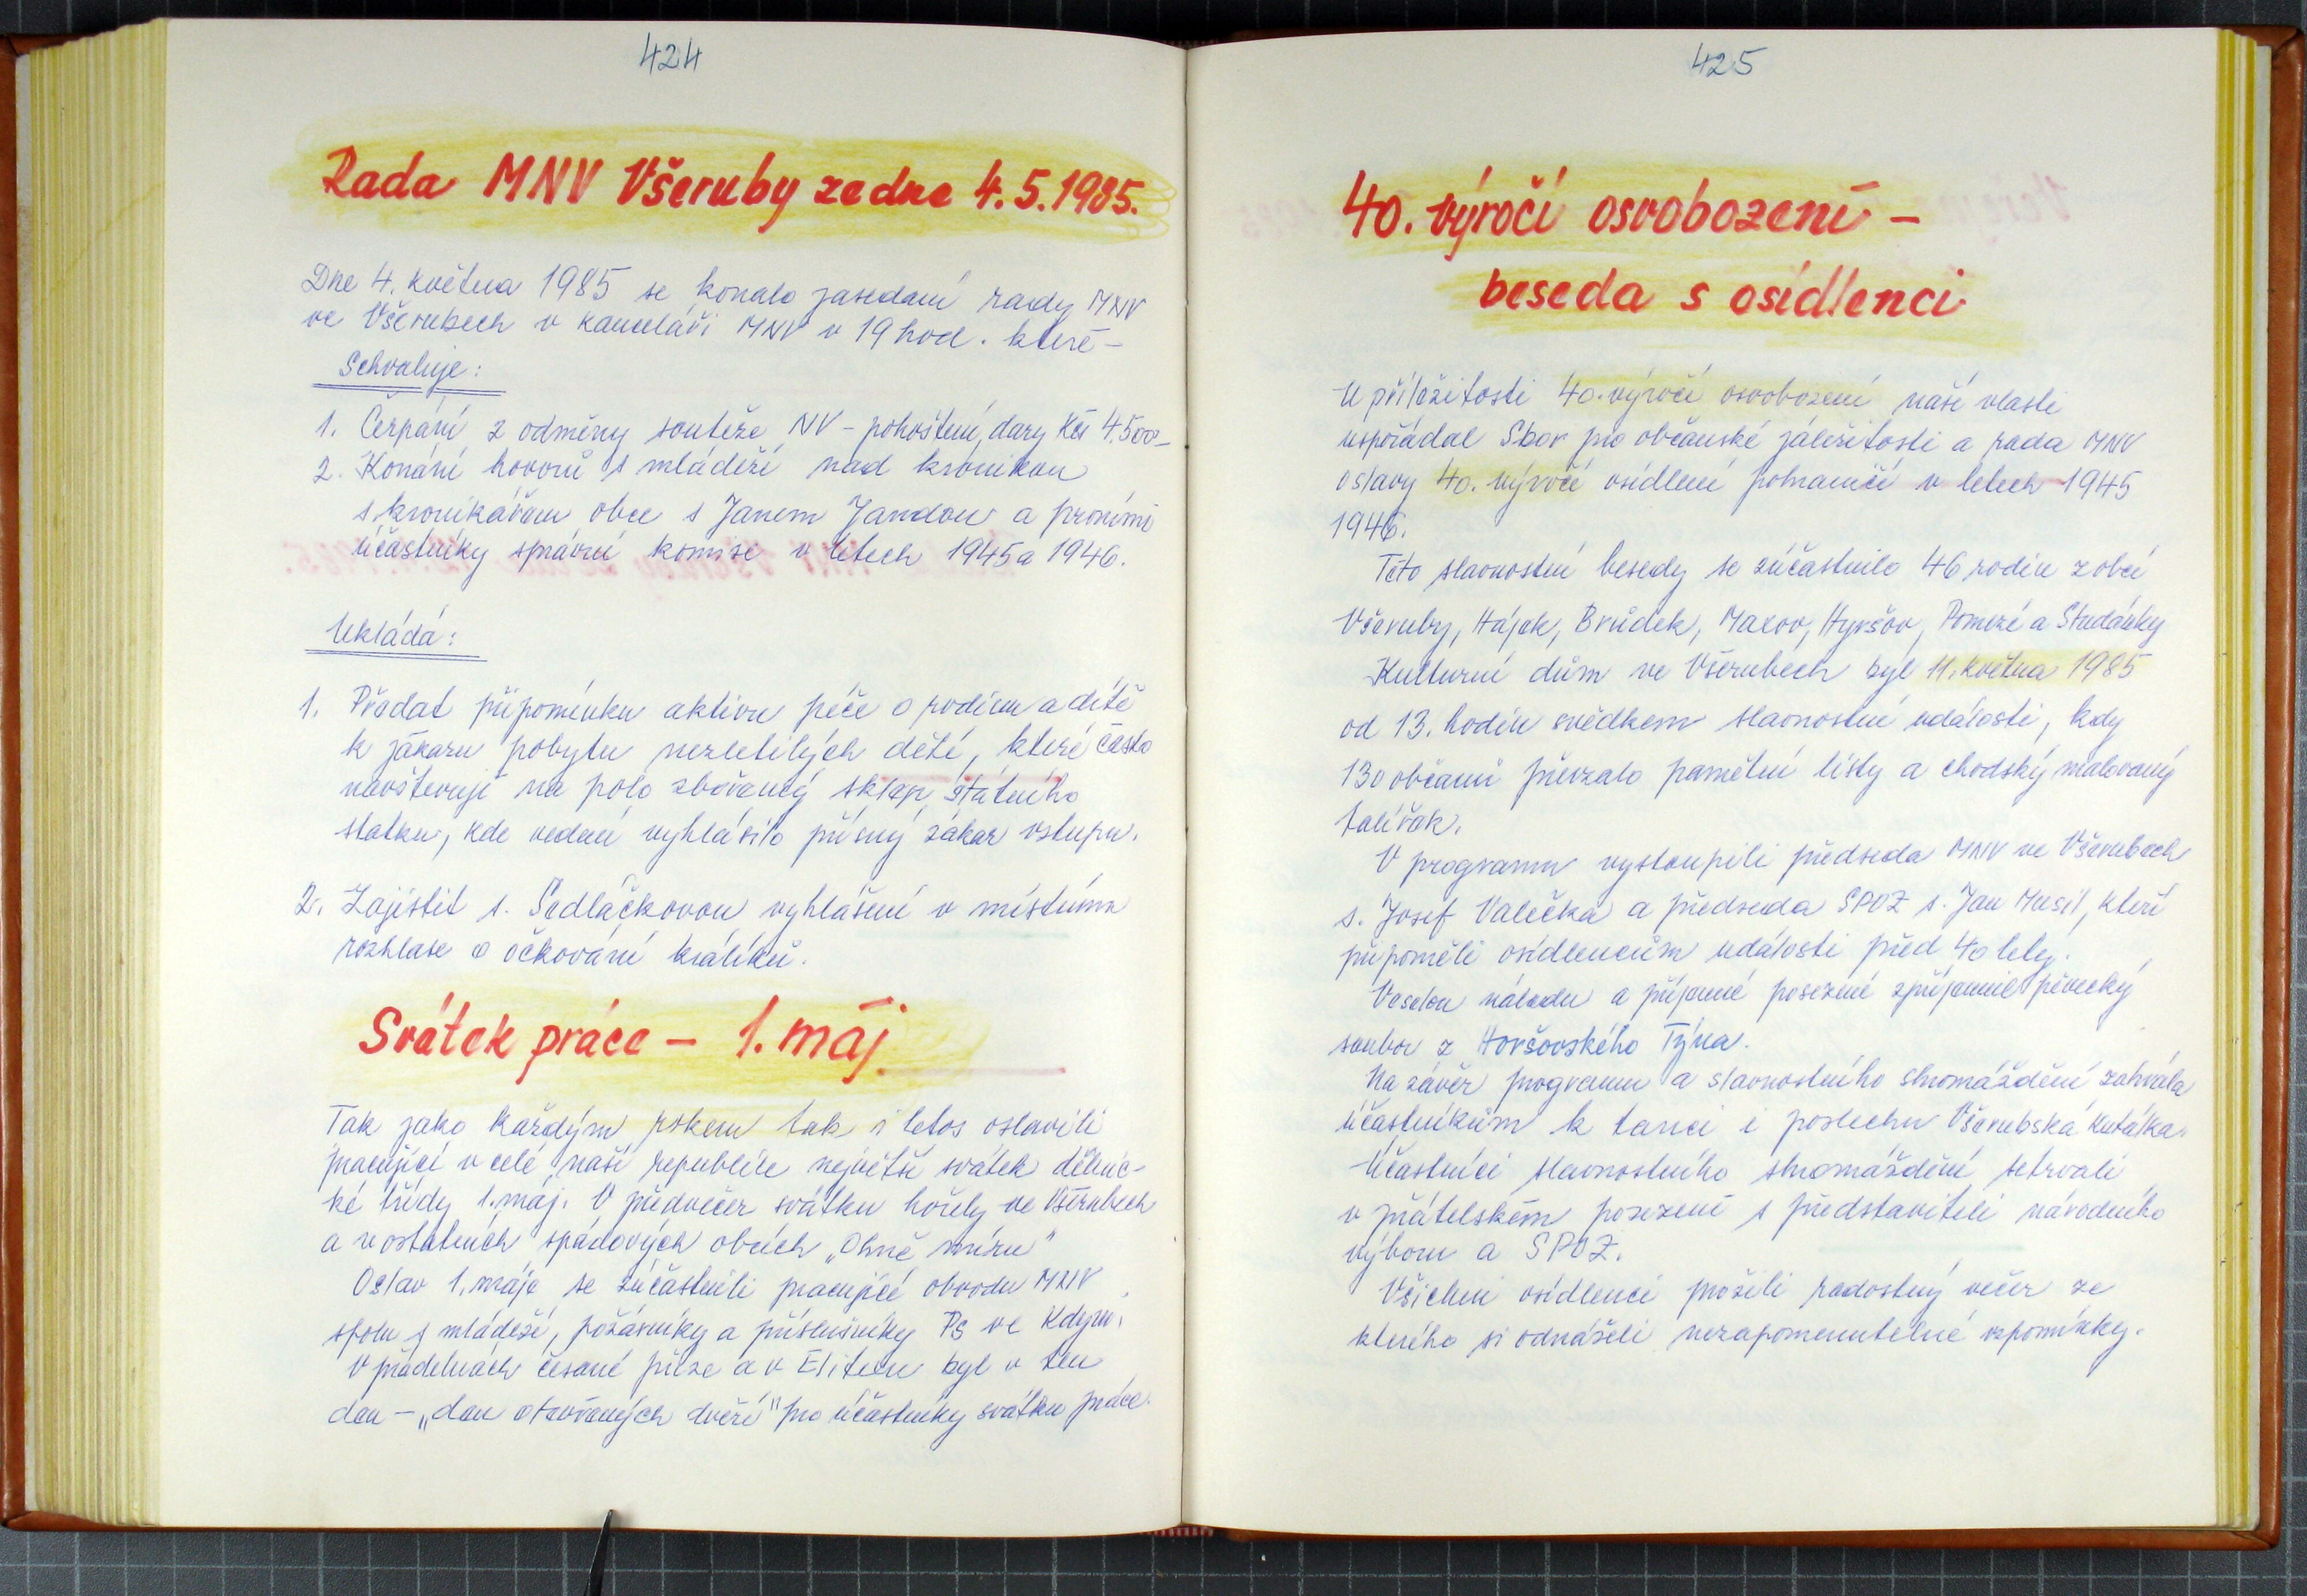 424
Rada MNV Všeruby ze dne 4.5.1985.
Dne 4. května 1985 se konalo zasedání rady MNV
ve Všerubech v kanceláři MNV v 19 hod. které –
Schvaluje:
1. Čerpání z odměny soutěže NV – pohoštění, dary Kčs 4.500,-
2. Konání hovorů s mládeží nad kronikou
s kronikářem obce s Janem Jandou a prvními
účastníky správní komise v letech 1945 a 1946.
Ukládá:
1. Předat připomínku aktivu péče o rodinu a dítě
k zákazu pobytu nezletilých dětí, které často
navštěvují na polo zbořený sklep státního
statku, kde vedení vyhlásilo přísný zákaz vstupu.
2. Zajistit s. Sedláčkovou vyhlášení v místním
rozhlase o očkování králíků.
Svátek práce – 1. máj
Tak jako každým rokem tak i letos oslavili
pracující v celé naší republice největší svátek dělnic-
ké třídy 1. máj. V předvečer svátku hořely ve Všerubech
a v ostatních spádových obcích „Ohně míru"
Oslav 1. máje se zúčastnili pracující obvodu MNV
spolu s mládeží, požárníky a příslušníky PS ve Kdyni.
V přádelnách česané příze a v Elitexu byl v ten
den – „den otevřených dveří" pro účastníky svátku práce.
425
40. výročí osvobození –
beseda s osídlenci
U příležitosti 40. výročí osvobození naší vlasti
uspořádal Sbor pro občanské záležitosti a rada MNV
oslavy 40. výročí osídlení pohraničí v letech 1945
1946.
Této slavnostní besedy se zúčastnilo 46 rodin z obcí
Všeruby, Hájek, Brůdek, Maxov, Hyršov, Pomezí a Studánky
Kulturní dům ve Všerubech byl 11. května 1985
od 13. hodin svědkem slavnostní události, kdy
130 občanů převzalo pamětní listy a chodský malovaný
talířek.
V programu vystoupili předseda MNV ve Všerubech
s. Josef Valečka a předseda SPOZ s. Jan Musil, kteří
připoměli osídlencům události před 40 lety.
Veselou náladu a příjemné posezení zpříjemnil pěvecký
soubor z Horšovského Týna.
Na závěr programu a slavnostního shromáždění zahrála
účastníkům k tanci i poslechu Všerubská kutálka.
Účastníci slavnostního shromáždění setrvali
v přátelském posezení s představiteli národního
výboru a SPOZ.
Všichni osídlenci prožili radostný večer ze
kterého si odnášeli nezapomenutelné vzpomínky.